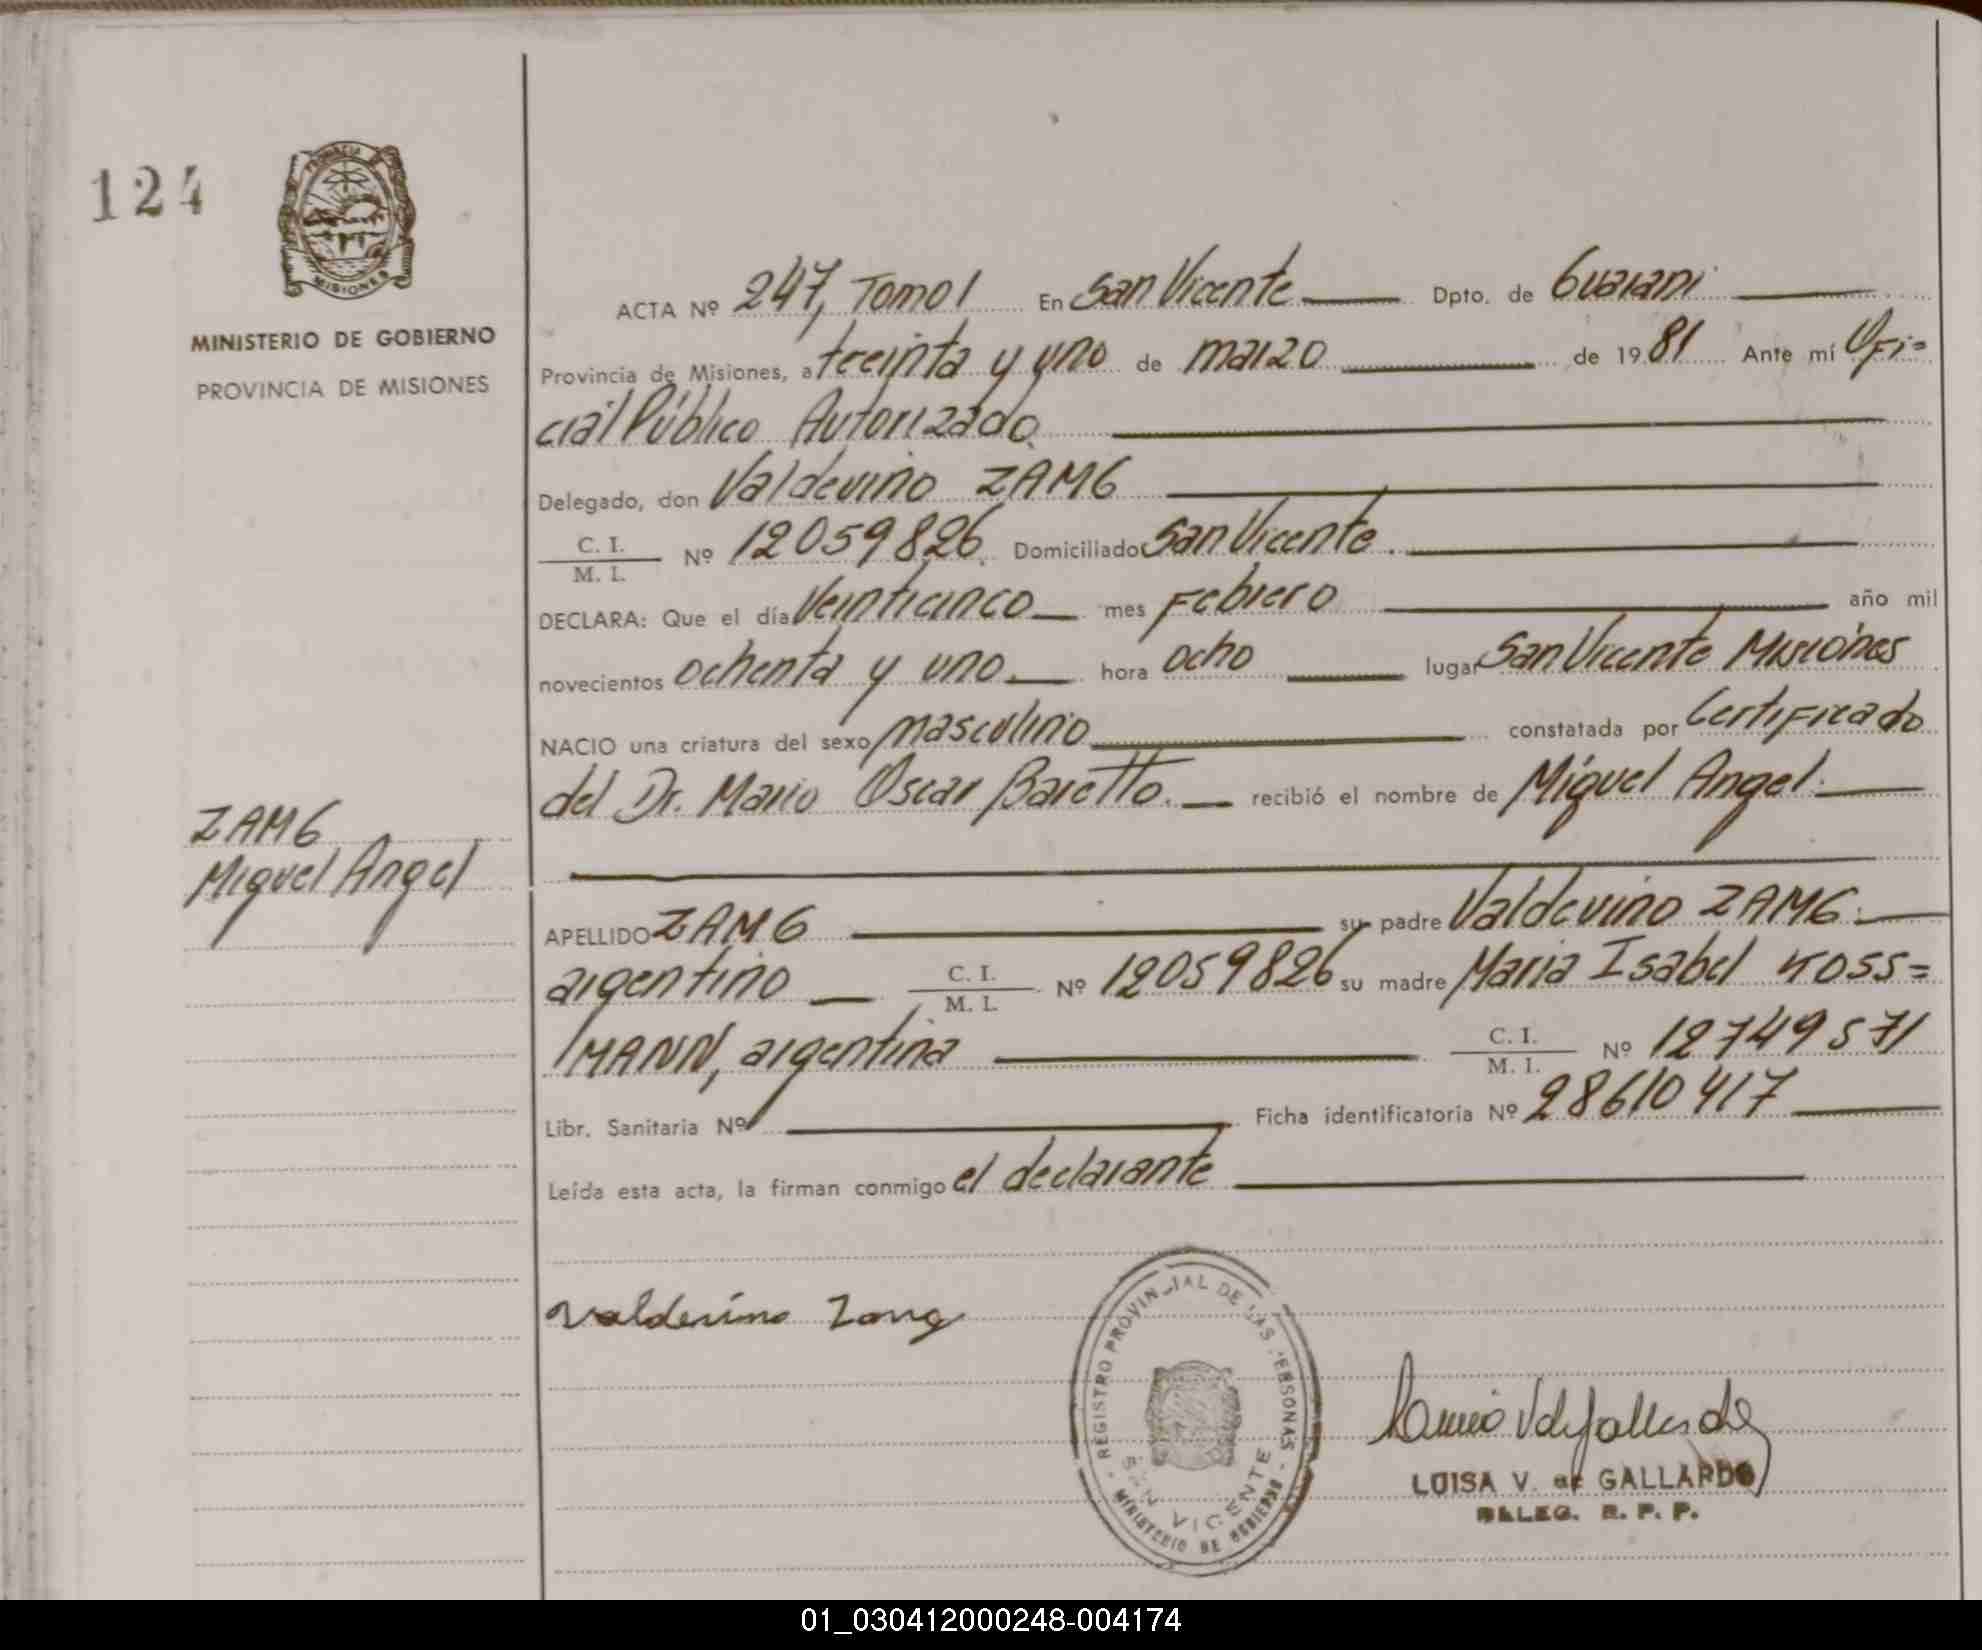 124
PROVINCIA
MISIONES
MINISTERIO DE GOBIERNO
PROVINCIA DE MISIONES
ACTA Nº 247, Tomo I En San Vicente Dpto. de Guarani
Provincia de Misiones, a treinta y uno de marzo de 1981 Ante mí Ofi=
cial Público Autorizado
Delegado, don Valdevino ZAMG
C. I.
M. I. Nº 12059826. Domiciliado San Vicente.
DECLARA: Que el día Veinticinco mes Febrero año mil
novecientos ochenta y uno. hora ocho lugar San Vicente Misiones
NACIO una criatura del sexo masculino constatada por Certificado
del Dr. Mario Oscar Baretto. recibió el nombre de Miguel Angel.
ZAMG
Miguel Angel
APELLIDO ZAMG su padre Valdevino ZAMG.
argentino C. I.
M. I. Nº 12059826 su madre Maria Isabel KOSS=
MANN, argentina C. I.
M. I. Nº 12749571
Libr. Sanitaria Nº Ficha identificatoria Nº 28610417
Leída esta acta, la firman conmigo el declarante
Valdevino Zamg
REGISTRO PROVINCIAL DE LAS PERSONAS
SAN VICENTE
MINISTERIO DE GOBIERNO
LUISA V. de GALLARDO
DELEG. R. P. P.
01_030412000248-004174